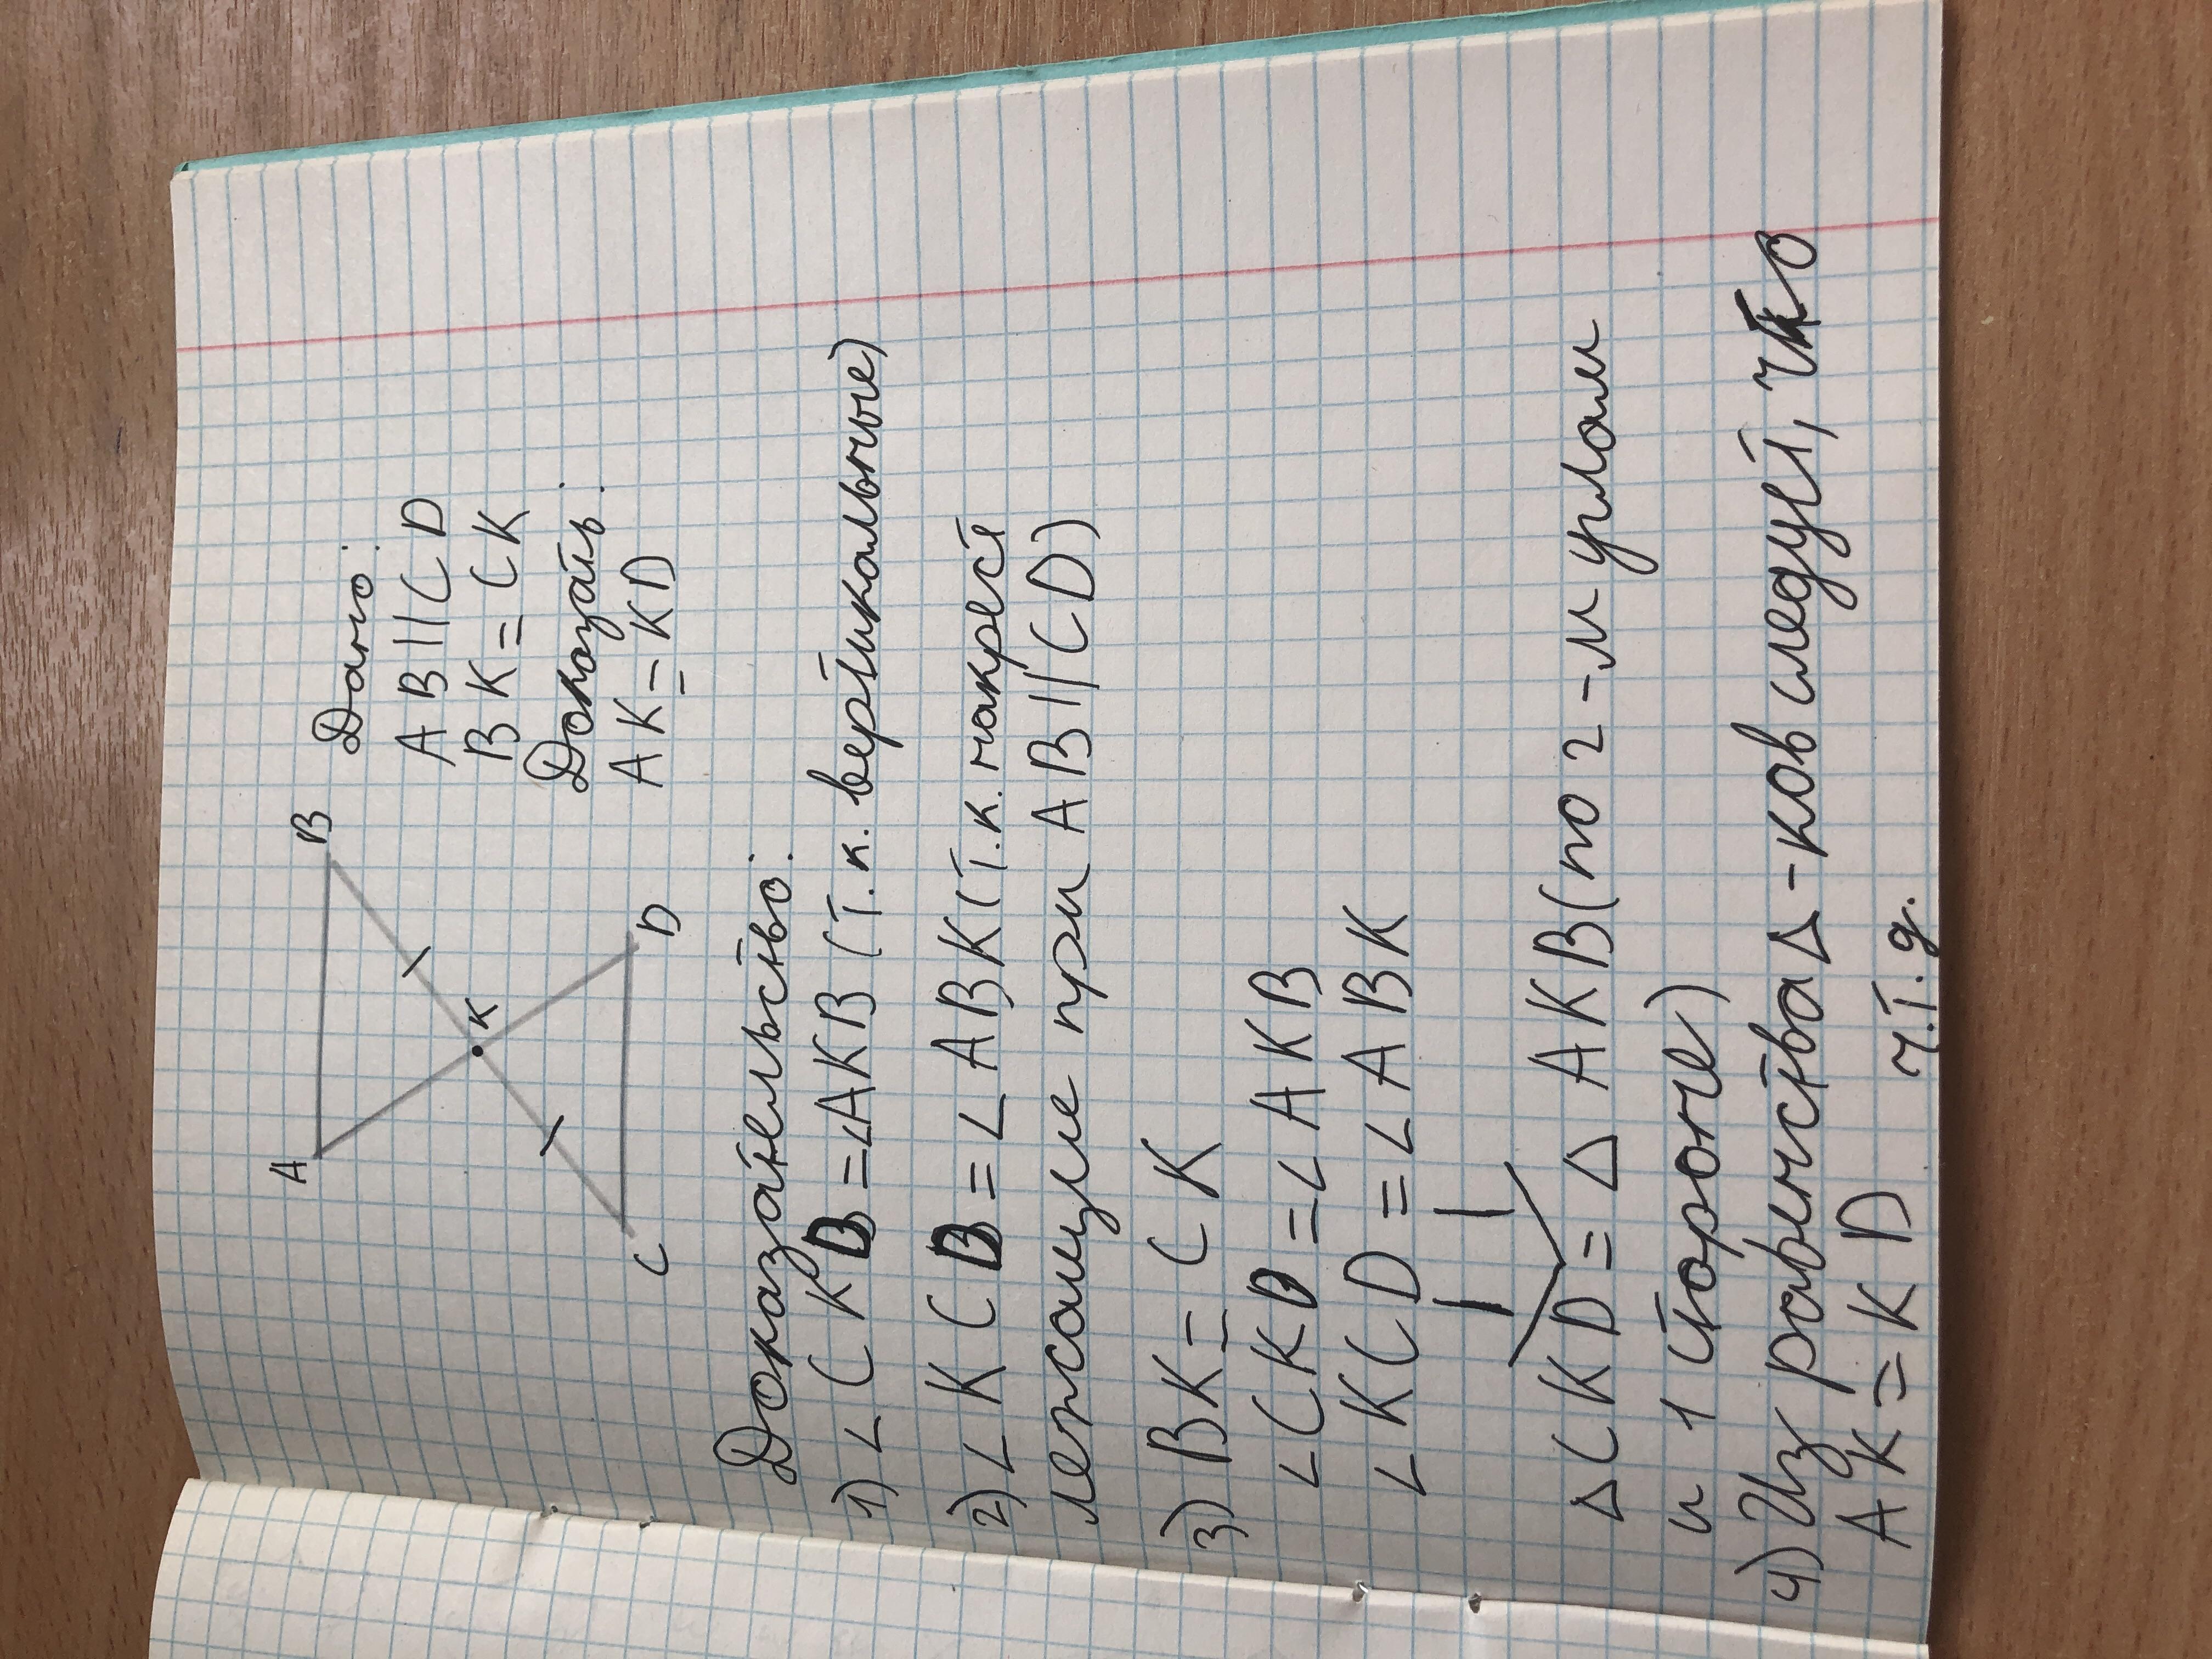 A B
K
C D
Дано:
AB || CD
BK = CK
Доказать:
AK = KD
Доказательство:
1) ∠CKD = ∠AKB (т.к. вертикальные)
2) ∠KCD = ∠ABK (т.к. накрест
лежащие при AB || CD)
3) BK = CK
∠CKD = ∠AKB
∠KCD = ∠ABK
⇓
△CKD = △AKB (по 2-м углам
и 1 стороне)
4) Из равенства △-ков следует, что
AK = KD ч.т.д.